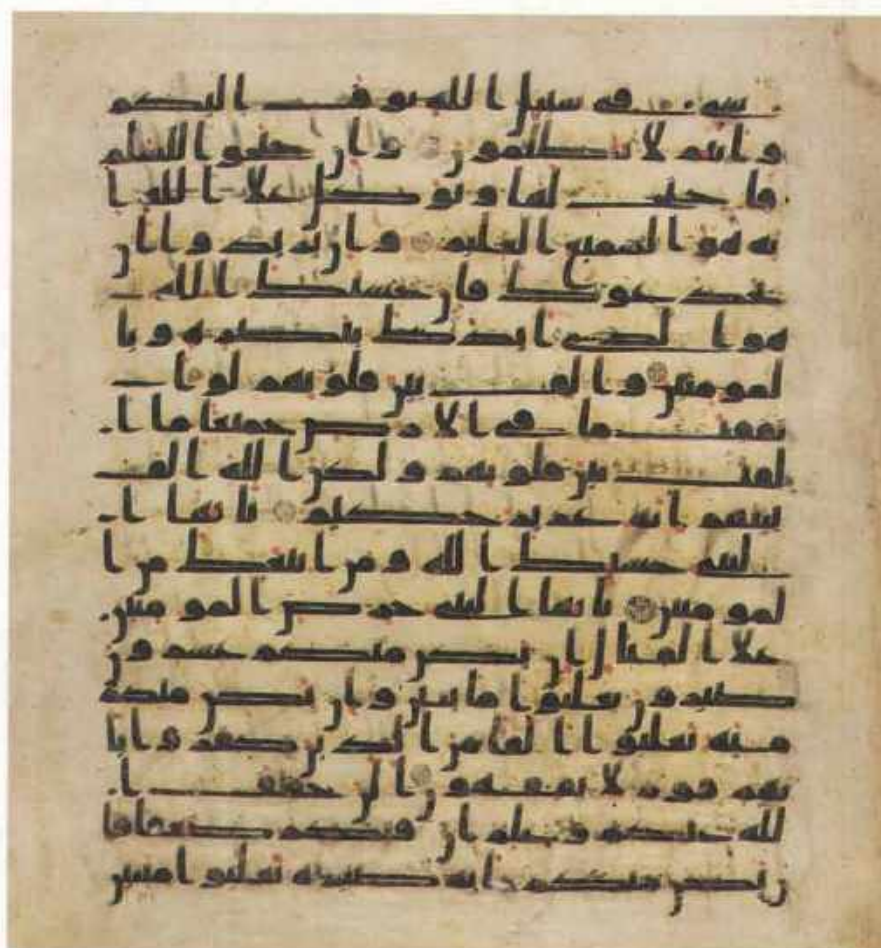 شىء فى سبيل الله يوف اليكم
وانتم لا تظلمون وان جنحوا للسلم
فاجنح لها وتوكل علا الله ا
نه هو السميع العليم وان يريدوا ان
يخدعوك فان حسبك الله
هو الذى ايدك بنصره وبا
لمومنين والف بين قلوبهم لو ا
نفقت ما فى الارض جميعا ما ا
لفت بين قلوبهم ولكن الله الف
بينهم انه عزيز حكيم يايها ا
لنبى حسبك الله ومن اتبعك من ا
لمومنين يايها النبى حرض المومنين
علا القتال ان يكن منكم عشرون
صبرون يغلبوا مايتين وان يكن منكم
مايه يغلبوا الفا من الذين كفروا با
نهم قوم لا يفقهون الن خفف ا
لله عنكم وعلم ان فيكم ضعفا فا
ن يكن منكم مايه صبره يغلبوا مايتين